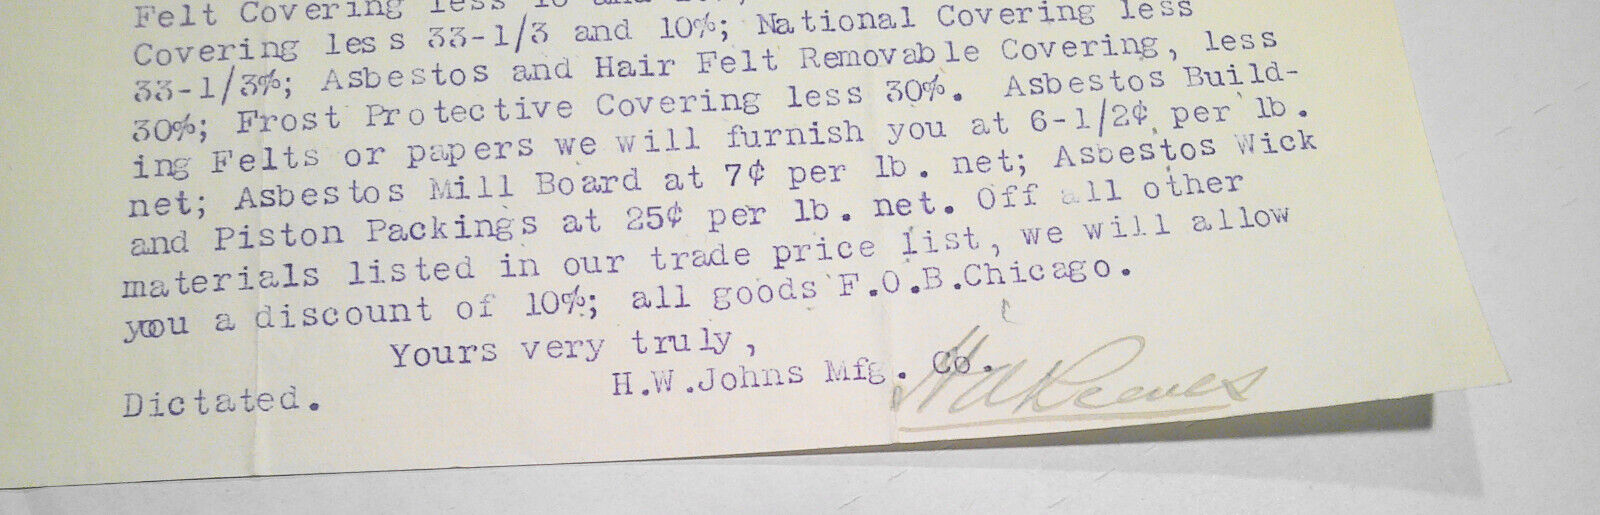 Felt Covering less 10 and
Covering less 33-1/3 and 10%; National Covering less
33-1/3%; Asbestos and Hair Felt Removable Covering, less
30%; Frost Protective Covering less 30%. Asbestos Build-
ing Felts or papers we will furnish you at 6-1/2¢ per lb.
net; Asbestos Mill Board at 7¢ per lb. net; Asbestos Wick
and Piston Packings at 25¢ per lb. net. Off all other
materials listed in our trade price list, we will allow
you a discount of 10%; all goods F.O.B.Chicago.
Yours very truly,
H.W.Johns Mfg. Co.
Dictated.
Reeves